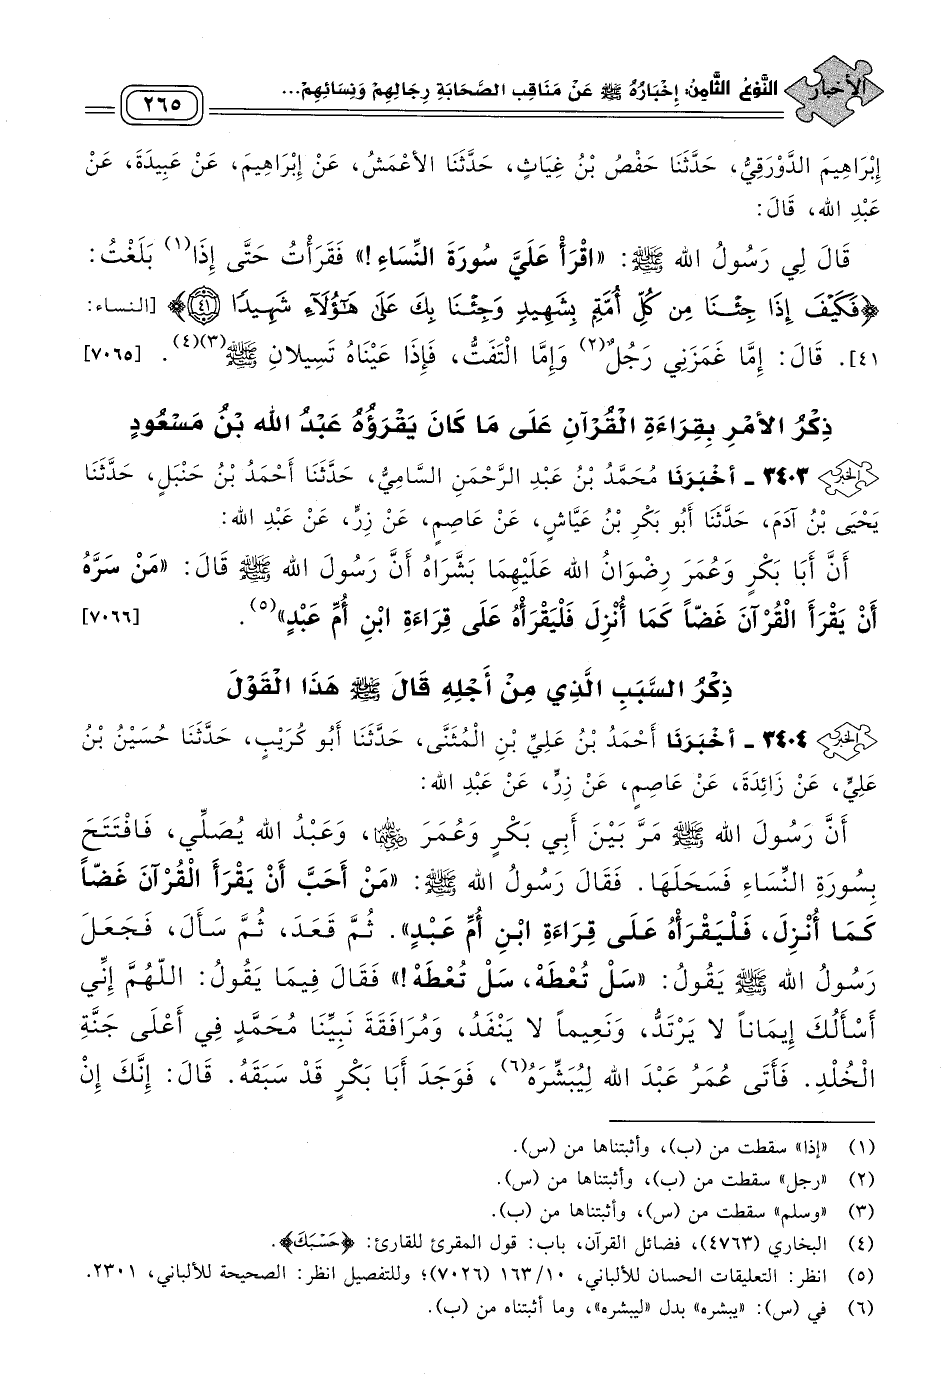 الأخبار
النَّوْعُ الثَّامِنُ: إخْبَارُهُ ﷺ عَنْ مَنَاقِبِ الصَّحَابَةِ رِجَالِهِمْ وَنِسَائِهِمْ...
٢٦٥
إِبْرَاهِيمَ الدَّوْرَقِيُّ، حَدَّثَنَا حَفْصُ بْنُ غِيَاثٍ، حَدَّثَنَا الأَعْمَشُ، عَنْ إِبْرَاهِيمَ، عَنْ عَبِيدَةَ، عَنْ
عَبْدِ الله، قَالَ:
قَالَ لِي رَسُولُ الله ﷺ: «اقْرَأْ عَلَيَّ سُورَةَ النِّسَاءِ!» فَقَرَأْتُ حَتَّى إِذَا(١) بَلَغْتُ:
﴿فَكَيْفَ إِذَا جِئْنَا مِن كُلِّ أُمَّةٍ بِشَهِيدٍ وَجِئْنَا بِكَ عَلَىٰ هَٰٓؤُلَآءِ شَهِيدًا ٤١﴾ [النساء:
٤١]. قَالَ: إِمَّا غَمَزَنِي رَجُلٌ(٢) وَإِمَّا الْتَفَتُّ، فَإِذَا عَيْنَاهُ تَسِيلانِ ﷺ(٣)(٤). [٧٠٦٥]
ذِكْرُ الأَمْرِ بِقِرَاءَةِ الْقُرْآنِ عَلَى مَا كَانَ يَقْرَؤُهُ عَبْدُ الله بْنُ مَسْعُودٍ
٣٤٠٣ - أخْبَرَنَا مُحَمَّدُ بْنُ عَبْدِ الرَّحْمَنِ السَّامِيُّ، حَدَّثَنَا أَحْمَدُ بْنُ حَنْبَلٍ، حَدَّثَنَا
يَحْيَى بْنُ آدَمَ، حَدَّثَنَا أَبُو بَكْرِ بْنُ عَيَّاشٍ، عَنْ عَاصِمٍ، عَنْ زِرٍّ، عَنْ عَبْدِ الله:
أَنَّ أَبَا بَكْرٍ وَعُمَرَ رِضْوَانُ الله عَلَيْهِمَا بَشَّرَاهُ أَنَّ رَسُولَ الله ﷺ قَالَ: «مَنْ سَرَّهُ
أَنْ يَقْرَأَ الْقُرْآنَ غَضّاً كَمَا أُنْزِلَ فَلْيَقْرَأْهُ عَلَى قِرَاءَةِ ابْنِ أُمِّ عَبْدٍ»(٥). [٧٠٦٦]
ذِكْرُ السَّبَبِ الَّذِي مِنْ أَجْلِهِ قَالَ ﷺ هَذَا الْقَوْلَ
٣٤٠٤ - أخْبَرَنَا أَحْمَدُ بْنُ عَلِيِّ بْنِ الْمُثَنَّى، حَدَّثَنَا أَبُو كُرَيْبٍ، حَدَّثَنَا حُسَيْنُ بْنُ
عَلِيٍّ، عَنْ زَائِدَةَ، عَنْ عَاصِمٍ، عَنْ زِرٍّ، عَنْ عَبْدِ الله:
أَنَّ رَسُولَ الله ﷺ مَرَّ بَيْنَ أَبِي بَكْرٍ وَعُمَرَ رضي الله عنهما، وَعَبْدُ الله يُصَلِّي، فَافْتَتَحَ
بِسُورَةِ النِّسَاءِ فَسَحَلَهَا. فَقَالَ رَسُولُ الله ﷺ: «مَنْ أَحَبَّ أَنْ يَقْرَأَ الْقُرْآنَ غَضّاً
كَمَا أُنْزِلَ، فَلْيَقْرَأْهُ عَلَى قِرَاءَةِ ابْنِ أُمِّ عَبْدٍ». ثُمَّ قَعَدَ، ثُمَّ سَأَلَ، فَجَعَلَ
رَسُولُ الله ﷺ يَقُولُ: «سَلْ تُعْطَهْ، سَلْ تُعْطَهْ!» فَقَالَ فِيمَا يَقُولُ: اللّهُمَّ إِنِّي
أَسْأَلُكَ إِيمَاناً لا يَرْتَدُّ، وَنَعِيماً لا يَنْفَدُ، وَمُرَافَقَةَ نَبِيِّنَا مُحَمَّدٍ فِي أَعْلَى جَنَّةِ
الْخُلْدِ. فَأَتَى عُمَرُ عَبْدَ الله لِيُبَشِّرَهُ(٦)، فَوَجَدَ أَبَا بَكْرٍ قَدْ سَبَقَهُ. قَالَ: إِنَّكَ إِنْ
(١) «إذا» سقطت من (ب)، وأثبتناها من (س).
(٢) «رجل» سقطت من (ب)، وأثبتناها من (س).
(٣) «وسلم» سقطت من (س)، وأثبتناها من (ب).
(٤) البخاري (٤٧٦٣)، فضائل القرآن، باب: قول المقرئ للقارئ: ﴿حَسْبُكَ﴾.
(٥) انظر: التعليقات الحسان للألباني، ١٠/ ١٦٣ (٧٠٢٦)؛ وللتفصيل انظر: الصحيحة للألباني، ٢٣٠١.
(٦) في (س): «يبشره» بدل «ليبشره»، وما أثبتناه من (ب).